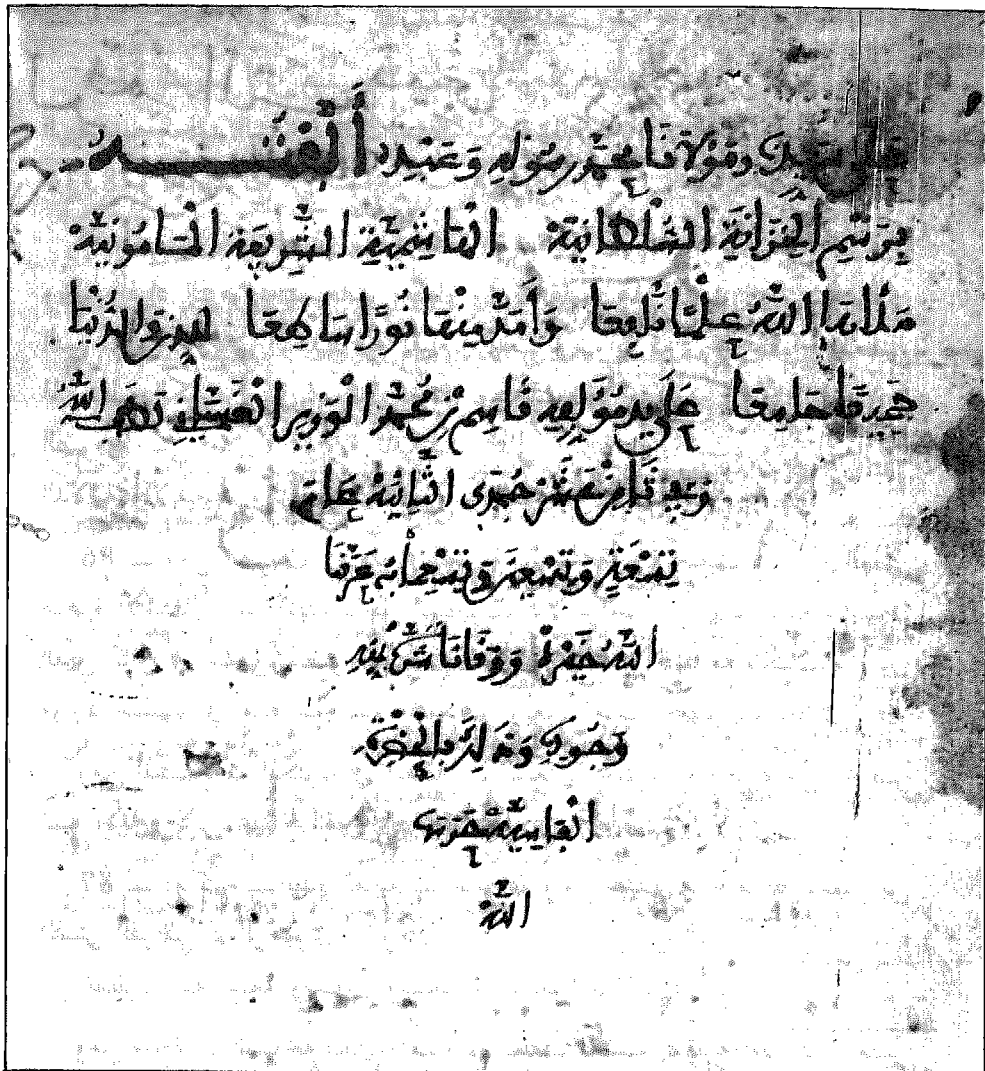 على سيدنا ومولانا محمد رسوله وعبده ألفتــــه
برسم الخزانة السلطانية الهاشمية الشريفة المامونية
ملأها الله علما نافعا وأمد منها نورا ساطعا للدين والدنيا
جامعا على يد مؤلفه قاسم بن محمد الوزير الغساني لطف الله
به في ثامن عشر جمدى الثانية عام
تسعة وتسعين وتسعمائه عرفنا
الله خيره ووقانا شره بمنه
وذلك بالحضرة
الفاسية حرسها
الله